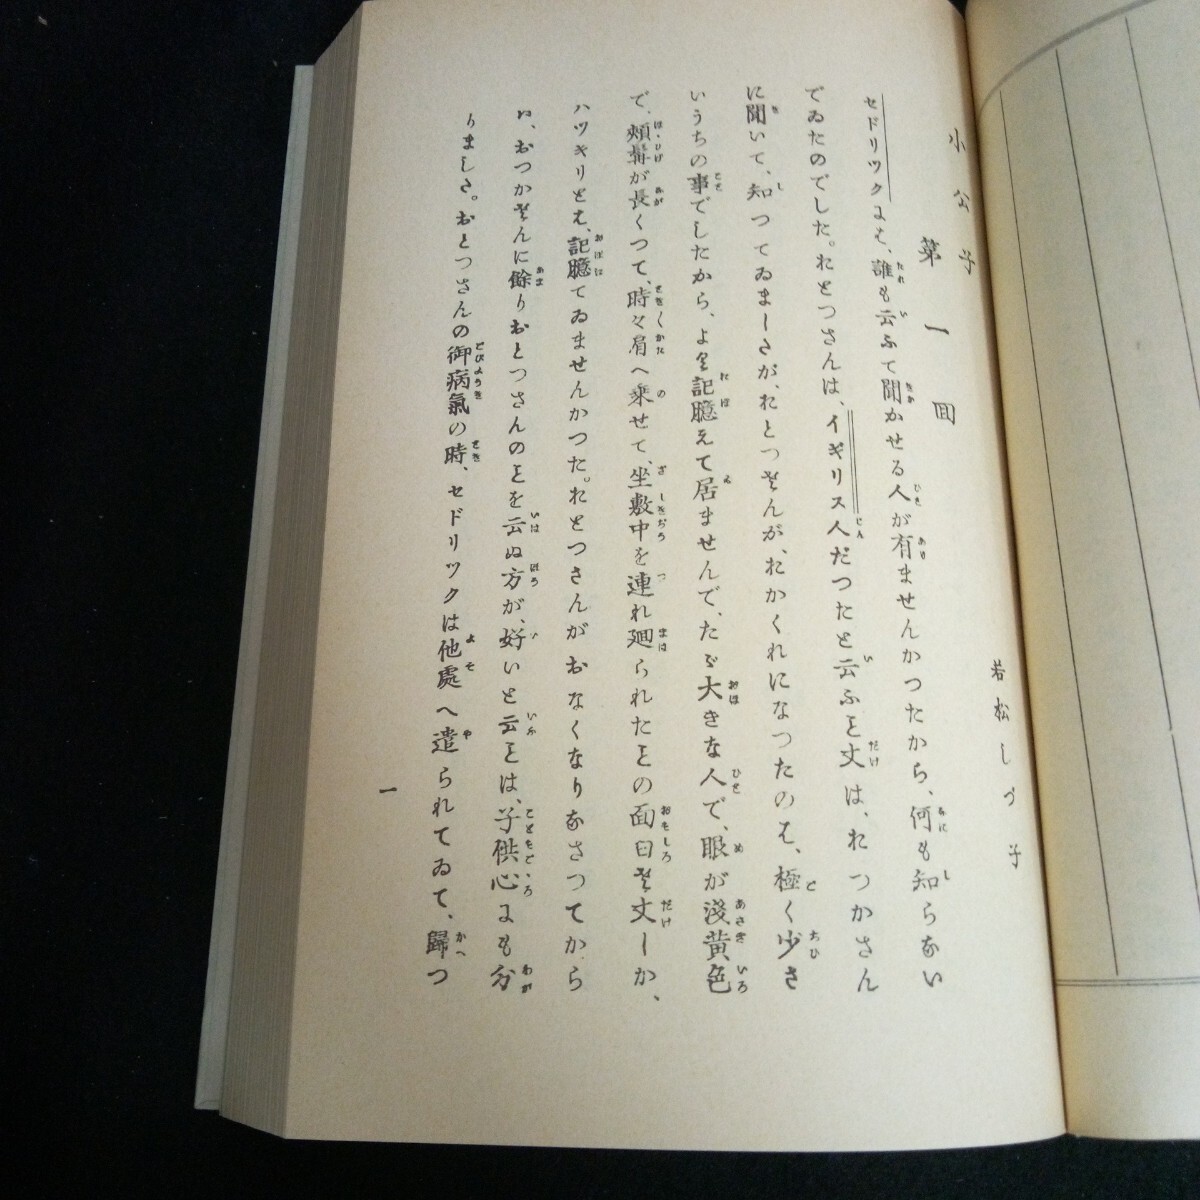 小公子
若松しづ子
第一回
セドリツクには、誰も云ふて聞かせる人が有ませんかつたから、何も知らないい
でゐたのでした。おとつさんは、イギリス人だつたと云ふこと丈は、おつかさん
に聞いて、知つてゐましたが、おとつさんが、おかくれになつたのは、極く少さ
いうちの事でしたから、よく記臆えて居ませんで、たゞ大きな人で、眼が淺黄色
で、頬髯が長くつて、時々肩へ乗せて、坐敷中を連れ廻られたことの面白さ丈しか、
ハツキリとは、記臆てゐませんかつた。おとつさんがおなくなりなさつてから
は、おつかさんに餘りおとつさんのことを云ぬ方が、好いと云ことは、子供心にも分
りました。おとつさんの御病氣の時、セドリツクは他處へ遣られてゐて、歸つ
一